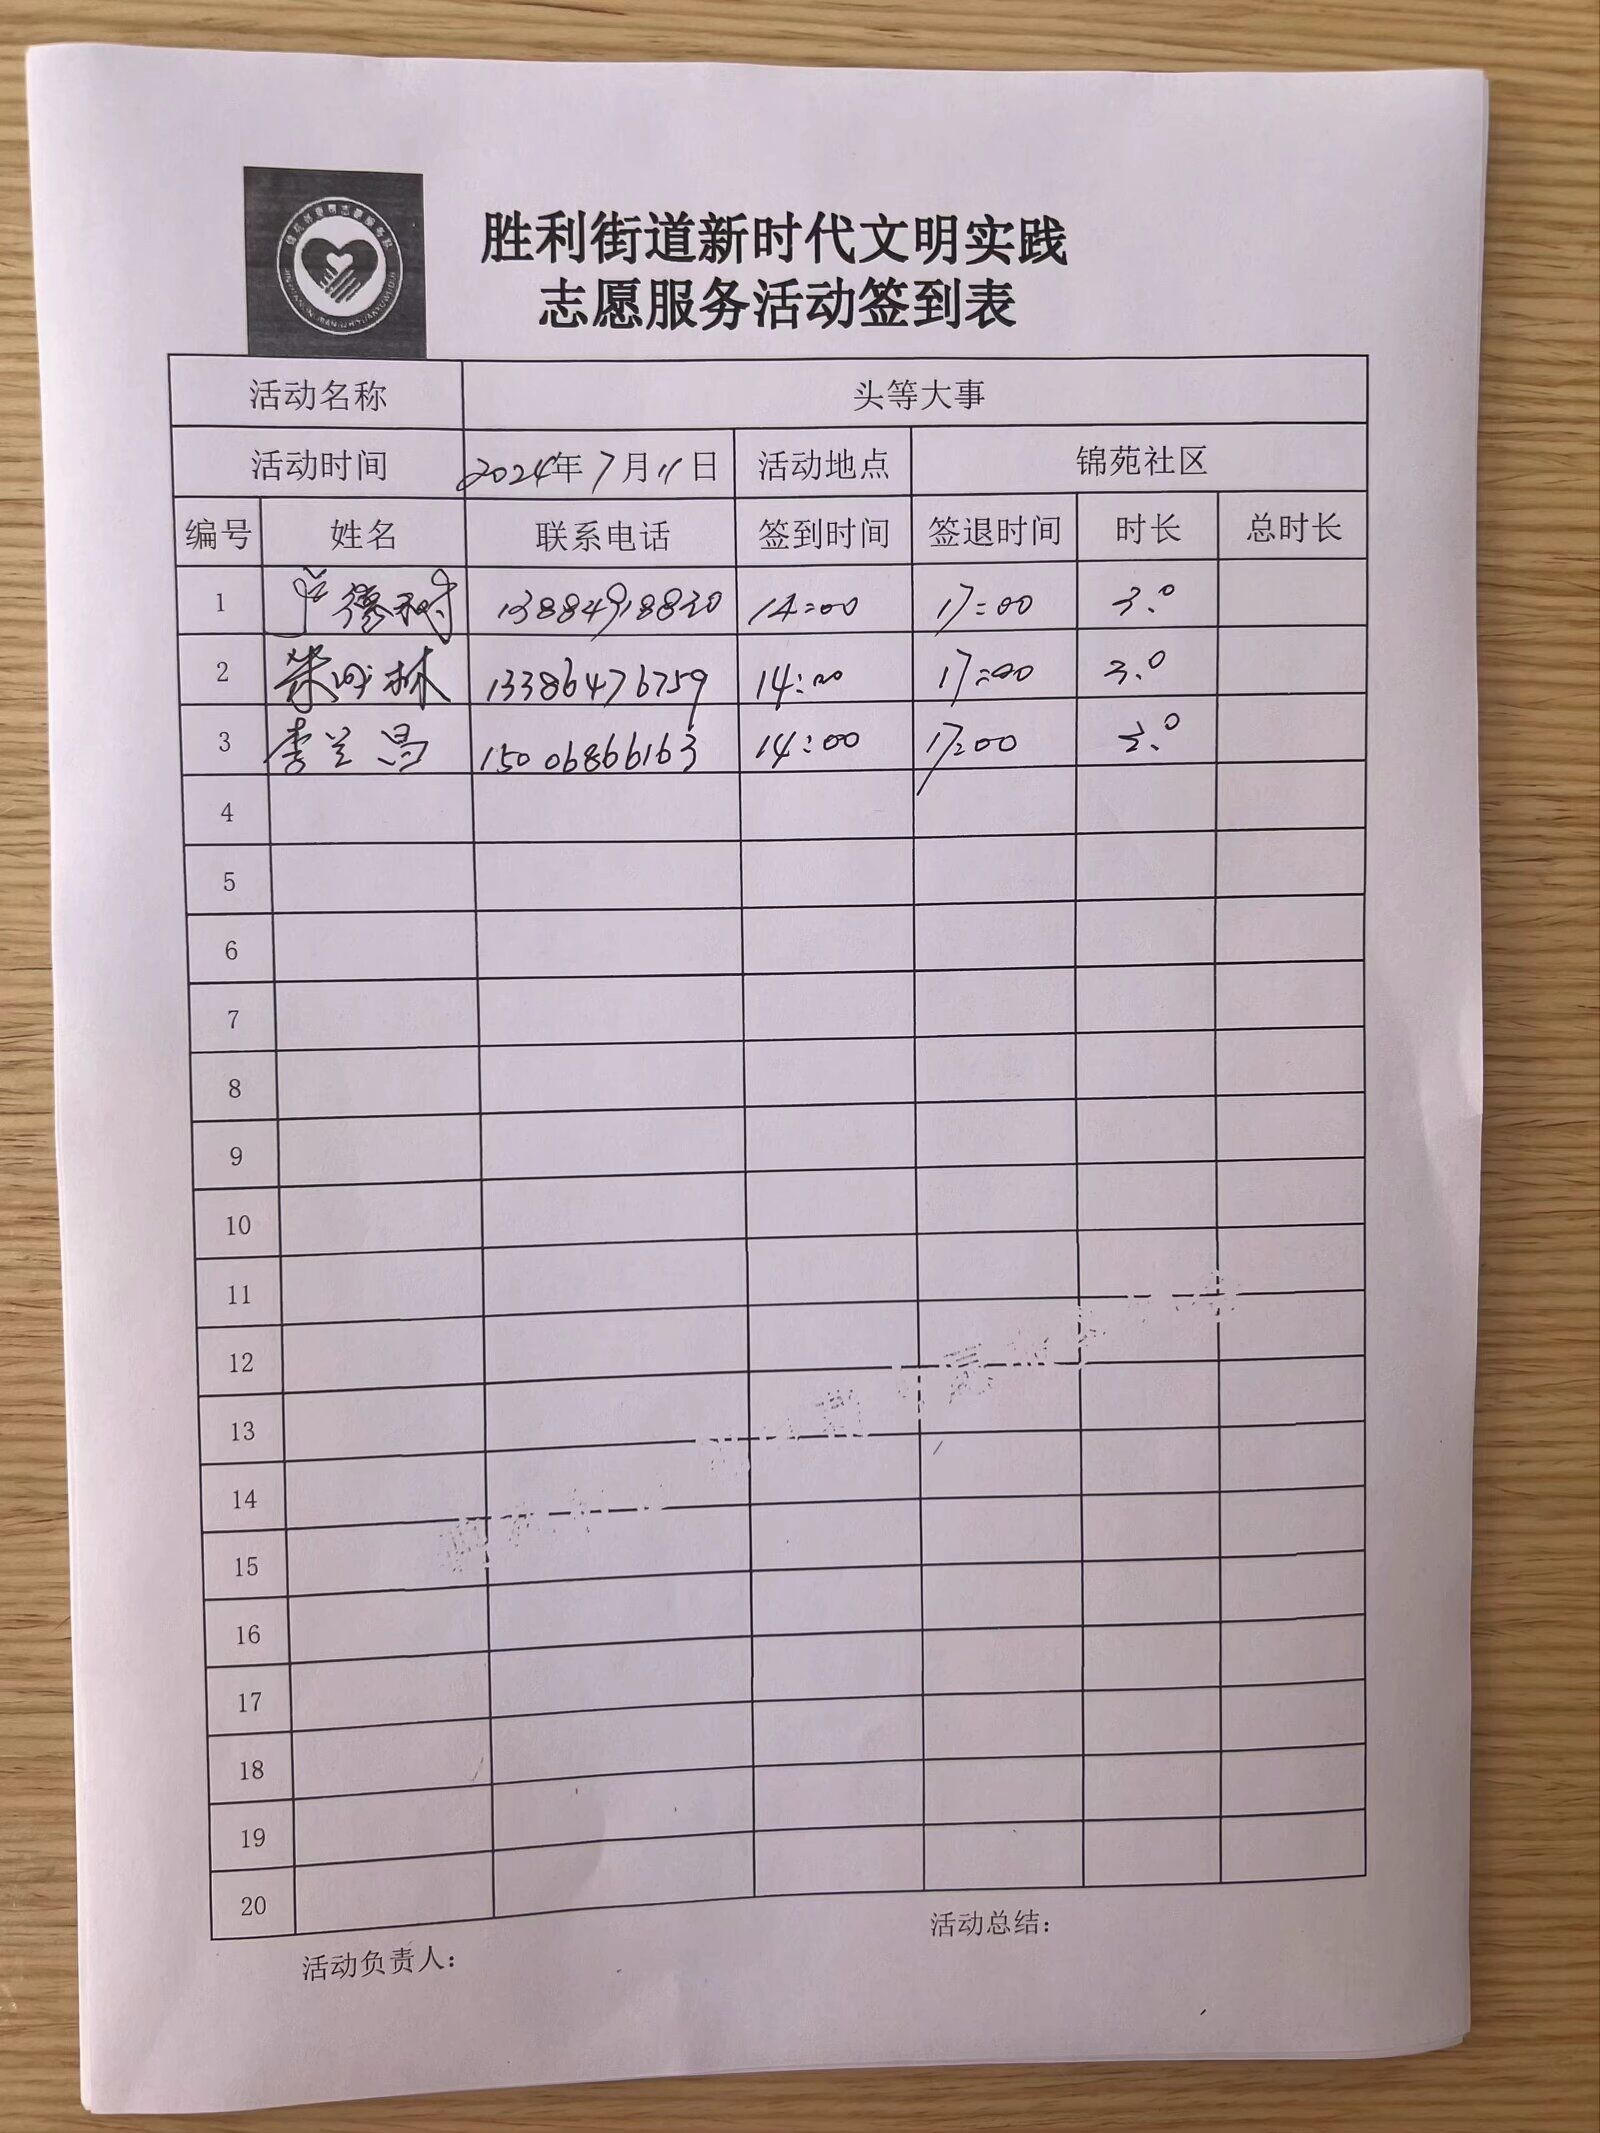 胜利街道新时代文明实践
志愿服务活动签到表
活动名称 头等大事
活动时间 2024年7月11日 活动地点 锦苑社区
编号 姓名 联系电话 签到时间 签退时间 时长 总时长
1 卢德树 13884918820 14:00 17:00 3.0
2 朱成林 13386476759 14:00 17:00 3.0
3 李兰昌 15006866163 14:00 17:00 3.0
4
5
6
7
8
9
10
11
12
13
14
15
16
17
18
19
20
活动负责人: 活动总结: